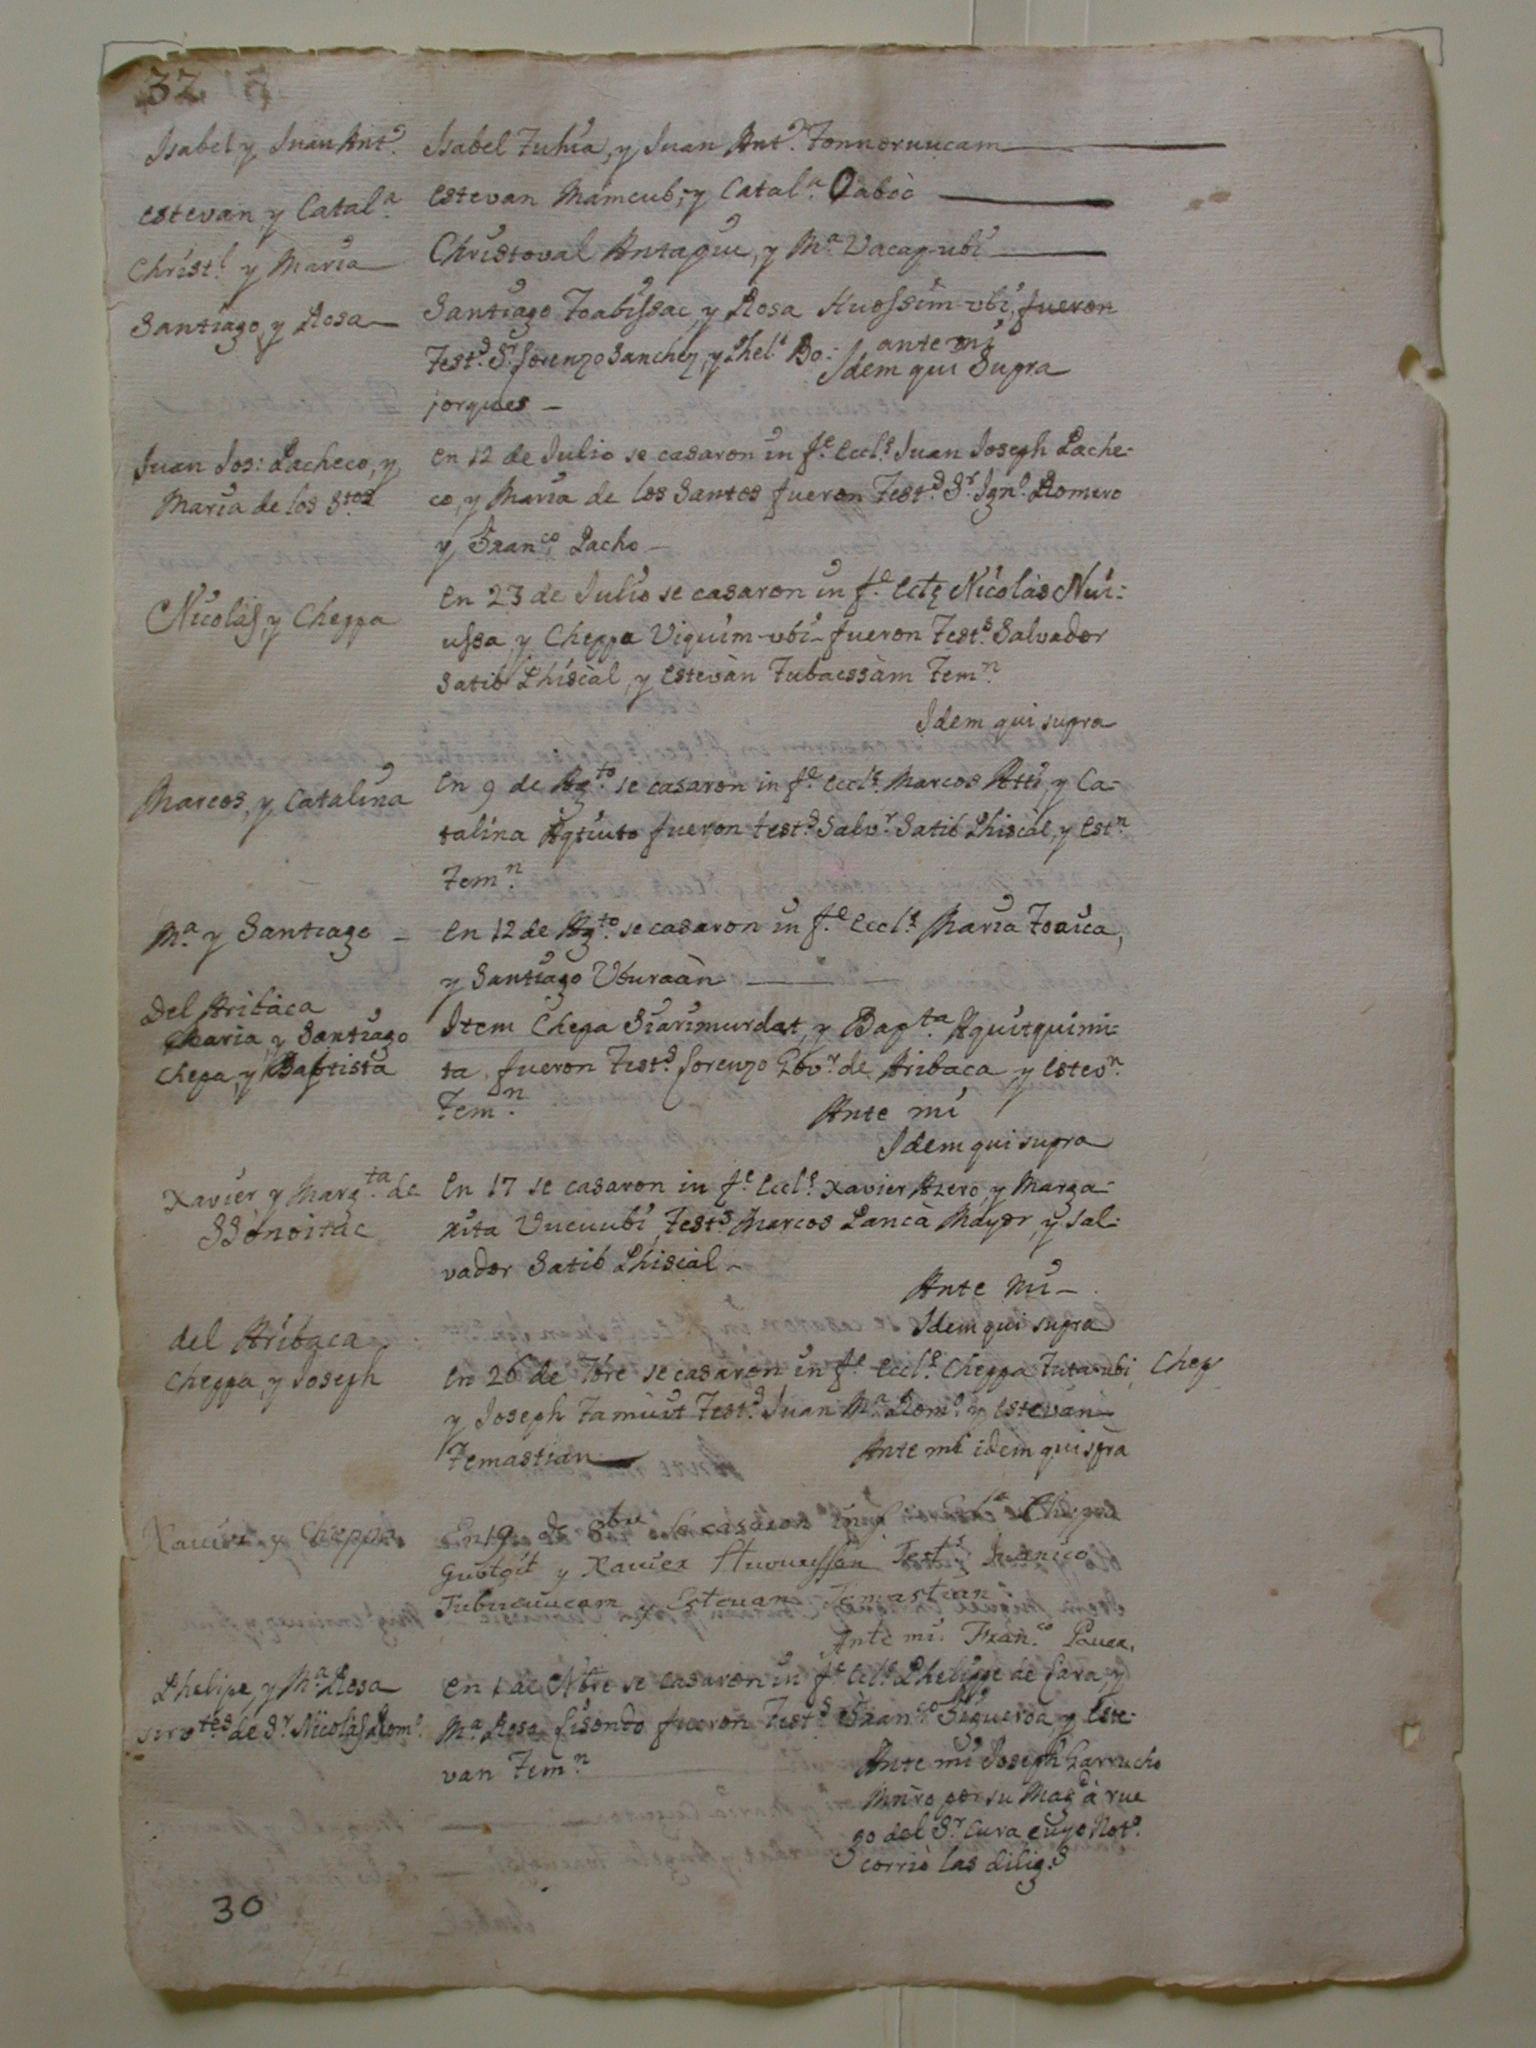 32
Isabel y Juan Antº. Isabel Tuhia, y Juan Antº. Tonnoruucam
Estevan y Catalª. Estevan Mamcub, y Catalª. Oaboc
Christl. y Maria Christoval Antaque, y Mª Vacap-ubi
Santiago, y Rosa Santiago Toabissac, y Rosa Huossim-ubi, fueron
Tests. Sr. Lorenzo Sanchez, y Phelˢ Bo: ante mi
jorques Idem qui Supra
Juan Jos: Pacheco, y En 12 de Julio se casaron in fᵉ. Ecclˢ. Juan Joseph Pache-
Maria de los Stos co, y Maria de los Santos fueron Testˢ. Sr. Ignº. Romero
y Franco. Pacho
Nicolás, y Cheppa En 23 de Julio se casaron in fᵉ. Nicolàs Nui-
ussa, y Cheppa Viquim-ubi fueron Testˢ. Salvador
Satib Phiscàl, y Estevàn Tubacssàm Temⁿ.
Idem qui supra
Marcos, y Catalina En 9 de Agto. se casaron in fᵉ. Ecclˢ. Marcos Atti, y Ca-
talina Aqtiuto fueron testˢ. Salvʳ. Satib Phiscàl, y Estⁿ.
Temⁿ.
Mª. y Santiago En 12 de Agto. se casaron in fᵉ. Ecclˢ. Maria Toaica,
y Santiago Vburaàn
Del Aribaca
Maria, y Santiago Item Chepa Siarimurdat, y Bapta Aquitquimi-
Chepa, y Baptista ta, fueron Testˢ. Lorenzo Gbovʳ. de Aribaca y Estevⁿ.
Temⁿ. Ante mi
Idem qui supra
Xavier y Margta. de En 17 se casaron in fᵉ Ecclˢ. Xavier Azero, y Marga-
SSònoitac rita Vucuubi, Testˢ. Marcos Pancà Mayor, y Sal-
vador Satib Phiscàl
Ante Mi
del Aribaca Idem qui supra
Cheppa, y Joseph En 26 de 7bre se casaron in fᵉ Ecclˢ. Cheppa Tuta-ubi, Chep
y Joseph Tamuut Testˢ. Juan Mª Romº. y Estevàn
Temastian Ante mi idem qui spra
Xavier y Cheppa En 19 de 8bre se casaron in Cheppa
Gubtgit y Xavier Testˢ Juanico
Tubucuucam y Estevan Temastian
Ante mi Franco. Pauer.
Phelipe y Mª Rosa En 1 de Nbre se casaron in fᵉ Phelippe de Lara, y
sirvtes de Sr Nicolas Romº. Mª Rosa Lisondo fueron Testˢ. Franco Figueroa, y Este-
van Temⁿ Ante mi Joseph Garrucho
Mnro por su Magd à rue
go del Sr Cura cuyo Notº.
corriò las diligs
30